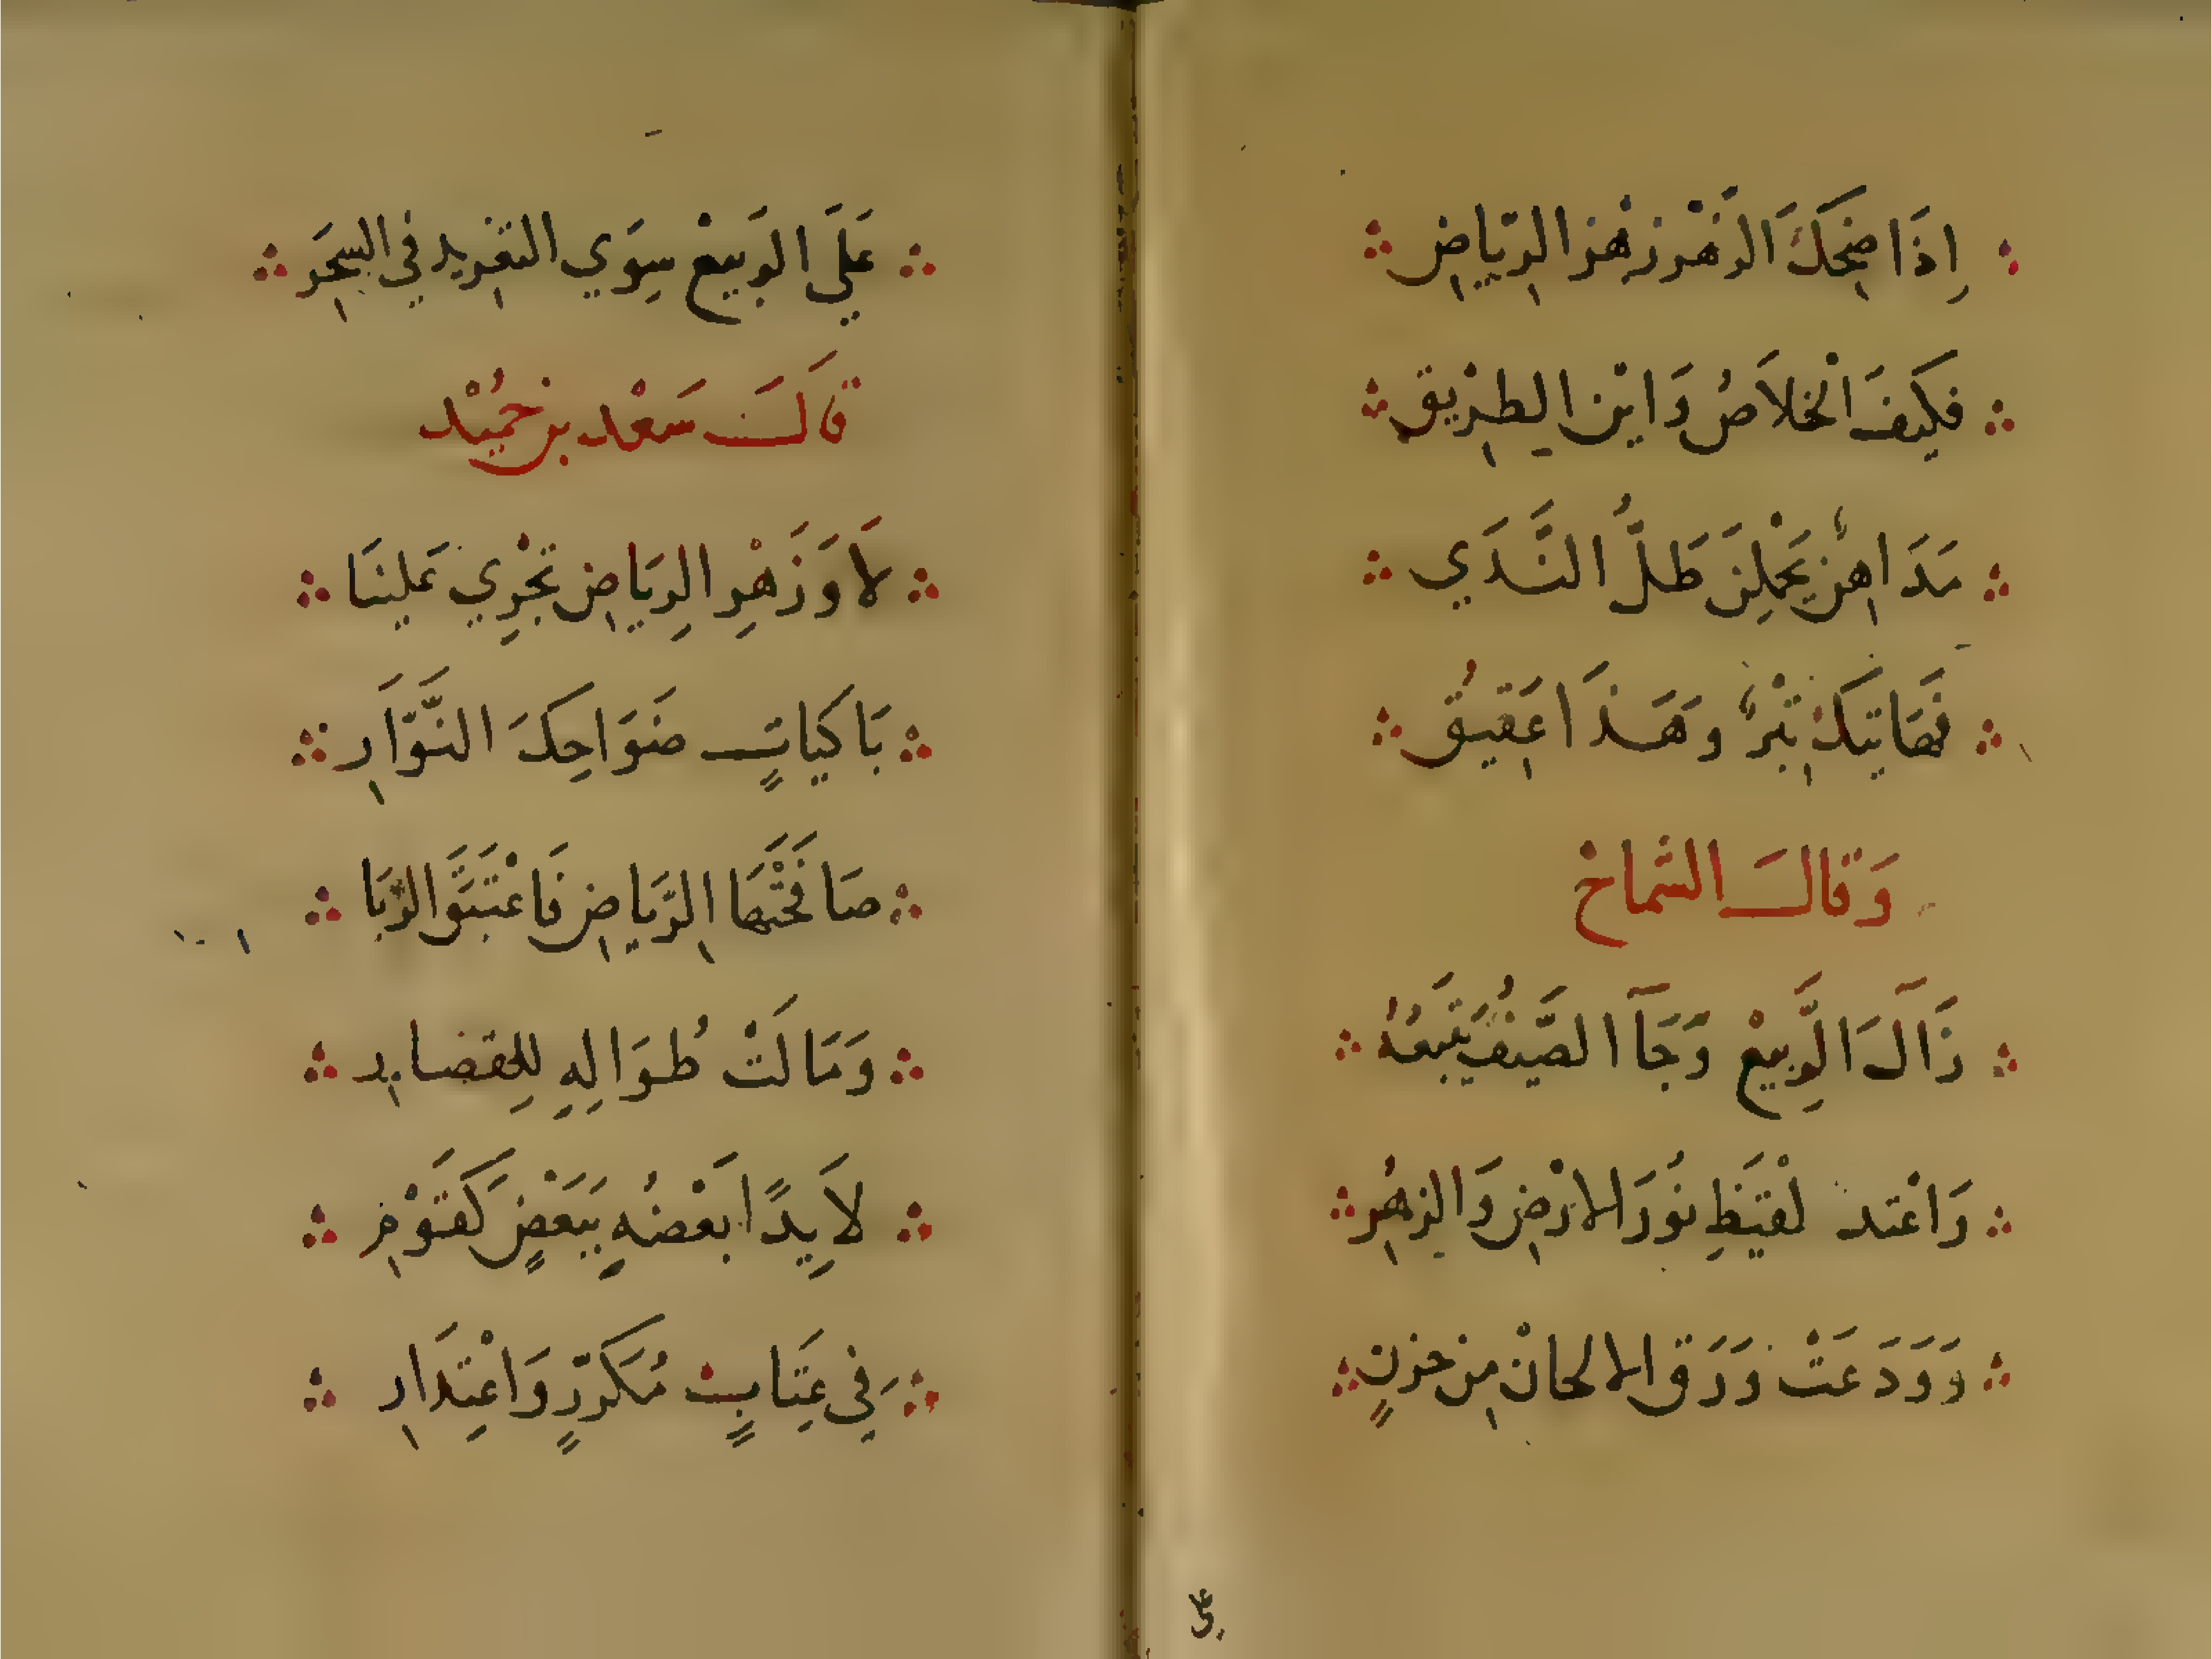 اِذَا ضَحِكَ الزَهْر زهْو الرّيَاضِ
فكيفَ الْخلاَصُ وَاين الطرْيق
مَدَاهنٌ يَحْمِلْنَ طَلَّ النَّدَي
فَهَاتيكَ تِبْرٌ وهَذَا عَقيقُ
وَقالَ الشماخ
زَالَ الَربيعْ وَجَآ الصَّيفُ يَتبَعُهُ
وَاعْتد لقيَظِ نُورَ الارْضِ وَالزهْرُ
وَوَدَعَتْ وَرَق الالحانْ مِن حزنٍ
عَلَي الربيعْ سِوَي التغريد في السحَر
قَالَ سَعْد بن حُمَيْد
لاَ وَزَهْرِ الرِيَاضِ تَجْرِي عَلينَا
بَاكيَاتٍ ضَوَاحِكَ النَّوَّارِ
صَافَحَتْهَا الرّيَاضِ فَاعْتَبَقَ الرُبَا
وَمَالَتْ طُوَالِهِ للِقضَايد
لاَيِدًا بَعْضُهِ بِبَعْضٍ كَقَوْمٍ
فِي عِتَابٍ مُكَررٍّ وَاعْتِدَارِ